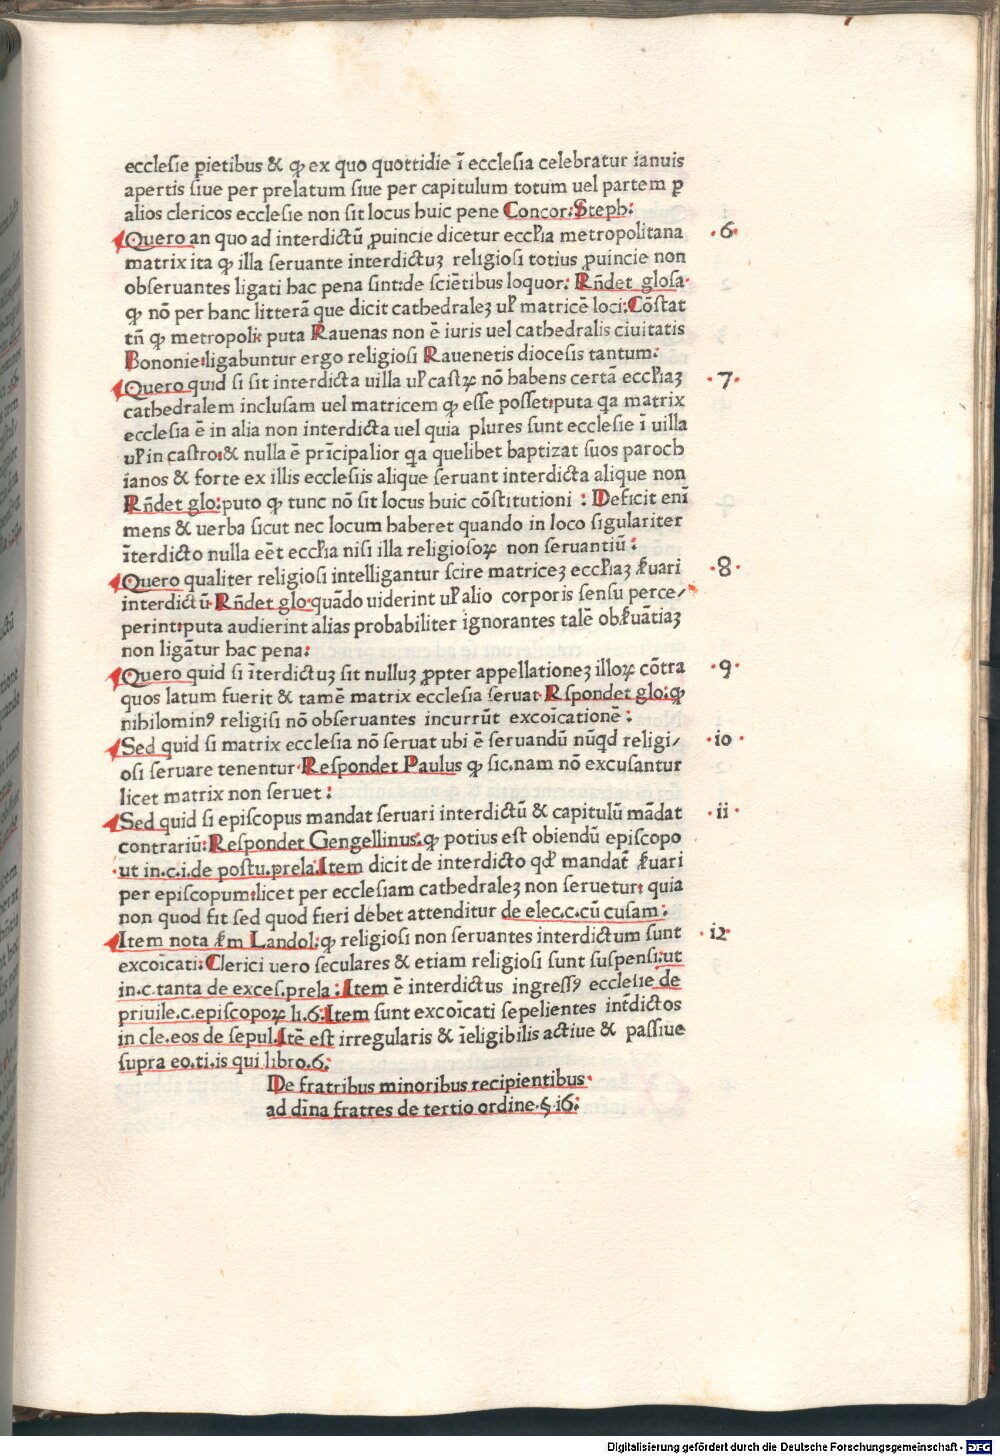 ecclesie pietibus & ꝙ ex quo quottidie ī ecclesia celebratur ianuis
apertis siue per prelatum siue per capitulum totum uel partem ꝑ
alios clericos ecclesie non sit locus huic pene Concor: Steph:
Quero an quo ad interdictū ꝓuincie dicetur eccl'ia metropolitana ·6·
matrix ita ꝙ illa seruante interdictuꝫ religiosi totius ꝓuincie non
obseruantes ligati hac pena sint: de sciētibus loquor: Rñdet glosa·
ꝙ nō per hanc litterā que dicit cathedraleꝫ ul' matricē loci: Cōstat
tñ ꝙ metropolis puta Rauenas non ē iuris uel cathedralis ciuitatis
Bononie: ligabuntur ergo religiosi Rauenetis diocesis tantum:
Quero quid si sit interdicta uilla ul' castꝝ nō habens certā eccl'iaꝫ ·7·
cathedralem inclusam uel matricem ꝙ esse posset: puta qa matrix
ecclesia ē in alia non interdicta uel quia plures sunt ecclesie ī uilla
ul' in castro: & nulla ē prīcipalior qa quelibet baptizat suos paroch
ianos & forte ex illis ecclesiis alique seruant interdicta alique non
Rñdet glo: puto ꝙ tunc nō sit locus huic cōstitutioni : Deficit enī
mens & uerba sicut nec locum haberet quando in loco sigulariter
īterdicto nulla eēt eccl'ia nisi illa religiosoꝝ non seruantiū:
Quero qualiter religiosi intelligantur scire matriceꝫ eccl'iaꝫ ẜuari ·8·
interdictū· Rñdet glo· quādo uiderint ul' alio corporis sensu perce/
perint: puta audierint alias probabiliter ignorantes talē obẜuātiaꝫ
non ligātur hac pena:
Quero quid si īterdictuꝫ sit nulluꝫ ꝓpter appellationeꝫ illoꝝ cōtra ·9·
quos latum fuerit & tamē matrix ecclesia seruat· Rspondet glo: ꝙ
nibilominꝰ religisi nō obseruantes incurrūt excoīcationē:
Sed quid si matrix ecclesia nō seruat ubi ē seruandū nūqd religi/ ·io·
osi seruare tenentur· Respondet Paulus ꝙ sic. nam nō excusantur
licet matrix non seruet:
Sed quid si episcopus mandat seruari interdictū & capitulū mādat ·ii·
contrariū: Respondet Gengellinus. ꝙ potius est obiendū episcopo
·ut in.c.i.de postu.prela. Item dicit de interdicto qd' mandat̄ ẜuari
per episcopum: licet per ecclesiam cathedraleꝫ non seruetur: quia
non quod fit sed quod fieri debet attenditur de elec.c.cū cusam:
Item nota ẜm Landol: ꝙ religiosi non seruantes interdictum sunt ·i2·
excoīcati: Clerici uero seculares & etiam religiosi sunt suspensi: ut
in.c.tanta de exces.prela: Item ē interdictus ingressꝰ ecclesie de
priuile.c.episcopoꝝ li.6. Item sunt excoīcati sepelientes int̄dictos
in cle.eos de sepul. Itē est irregularis & īeligibilis actiue & passiue
supra eo.ti.is qui libro.6:
De fratribus minoribus recipientibus·
ad diīna fratres de tertio ordine·§·i6:
Digitalisierung gefördert durch die Deutsche Forschungsgemeinschaft - DFG